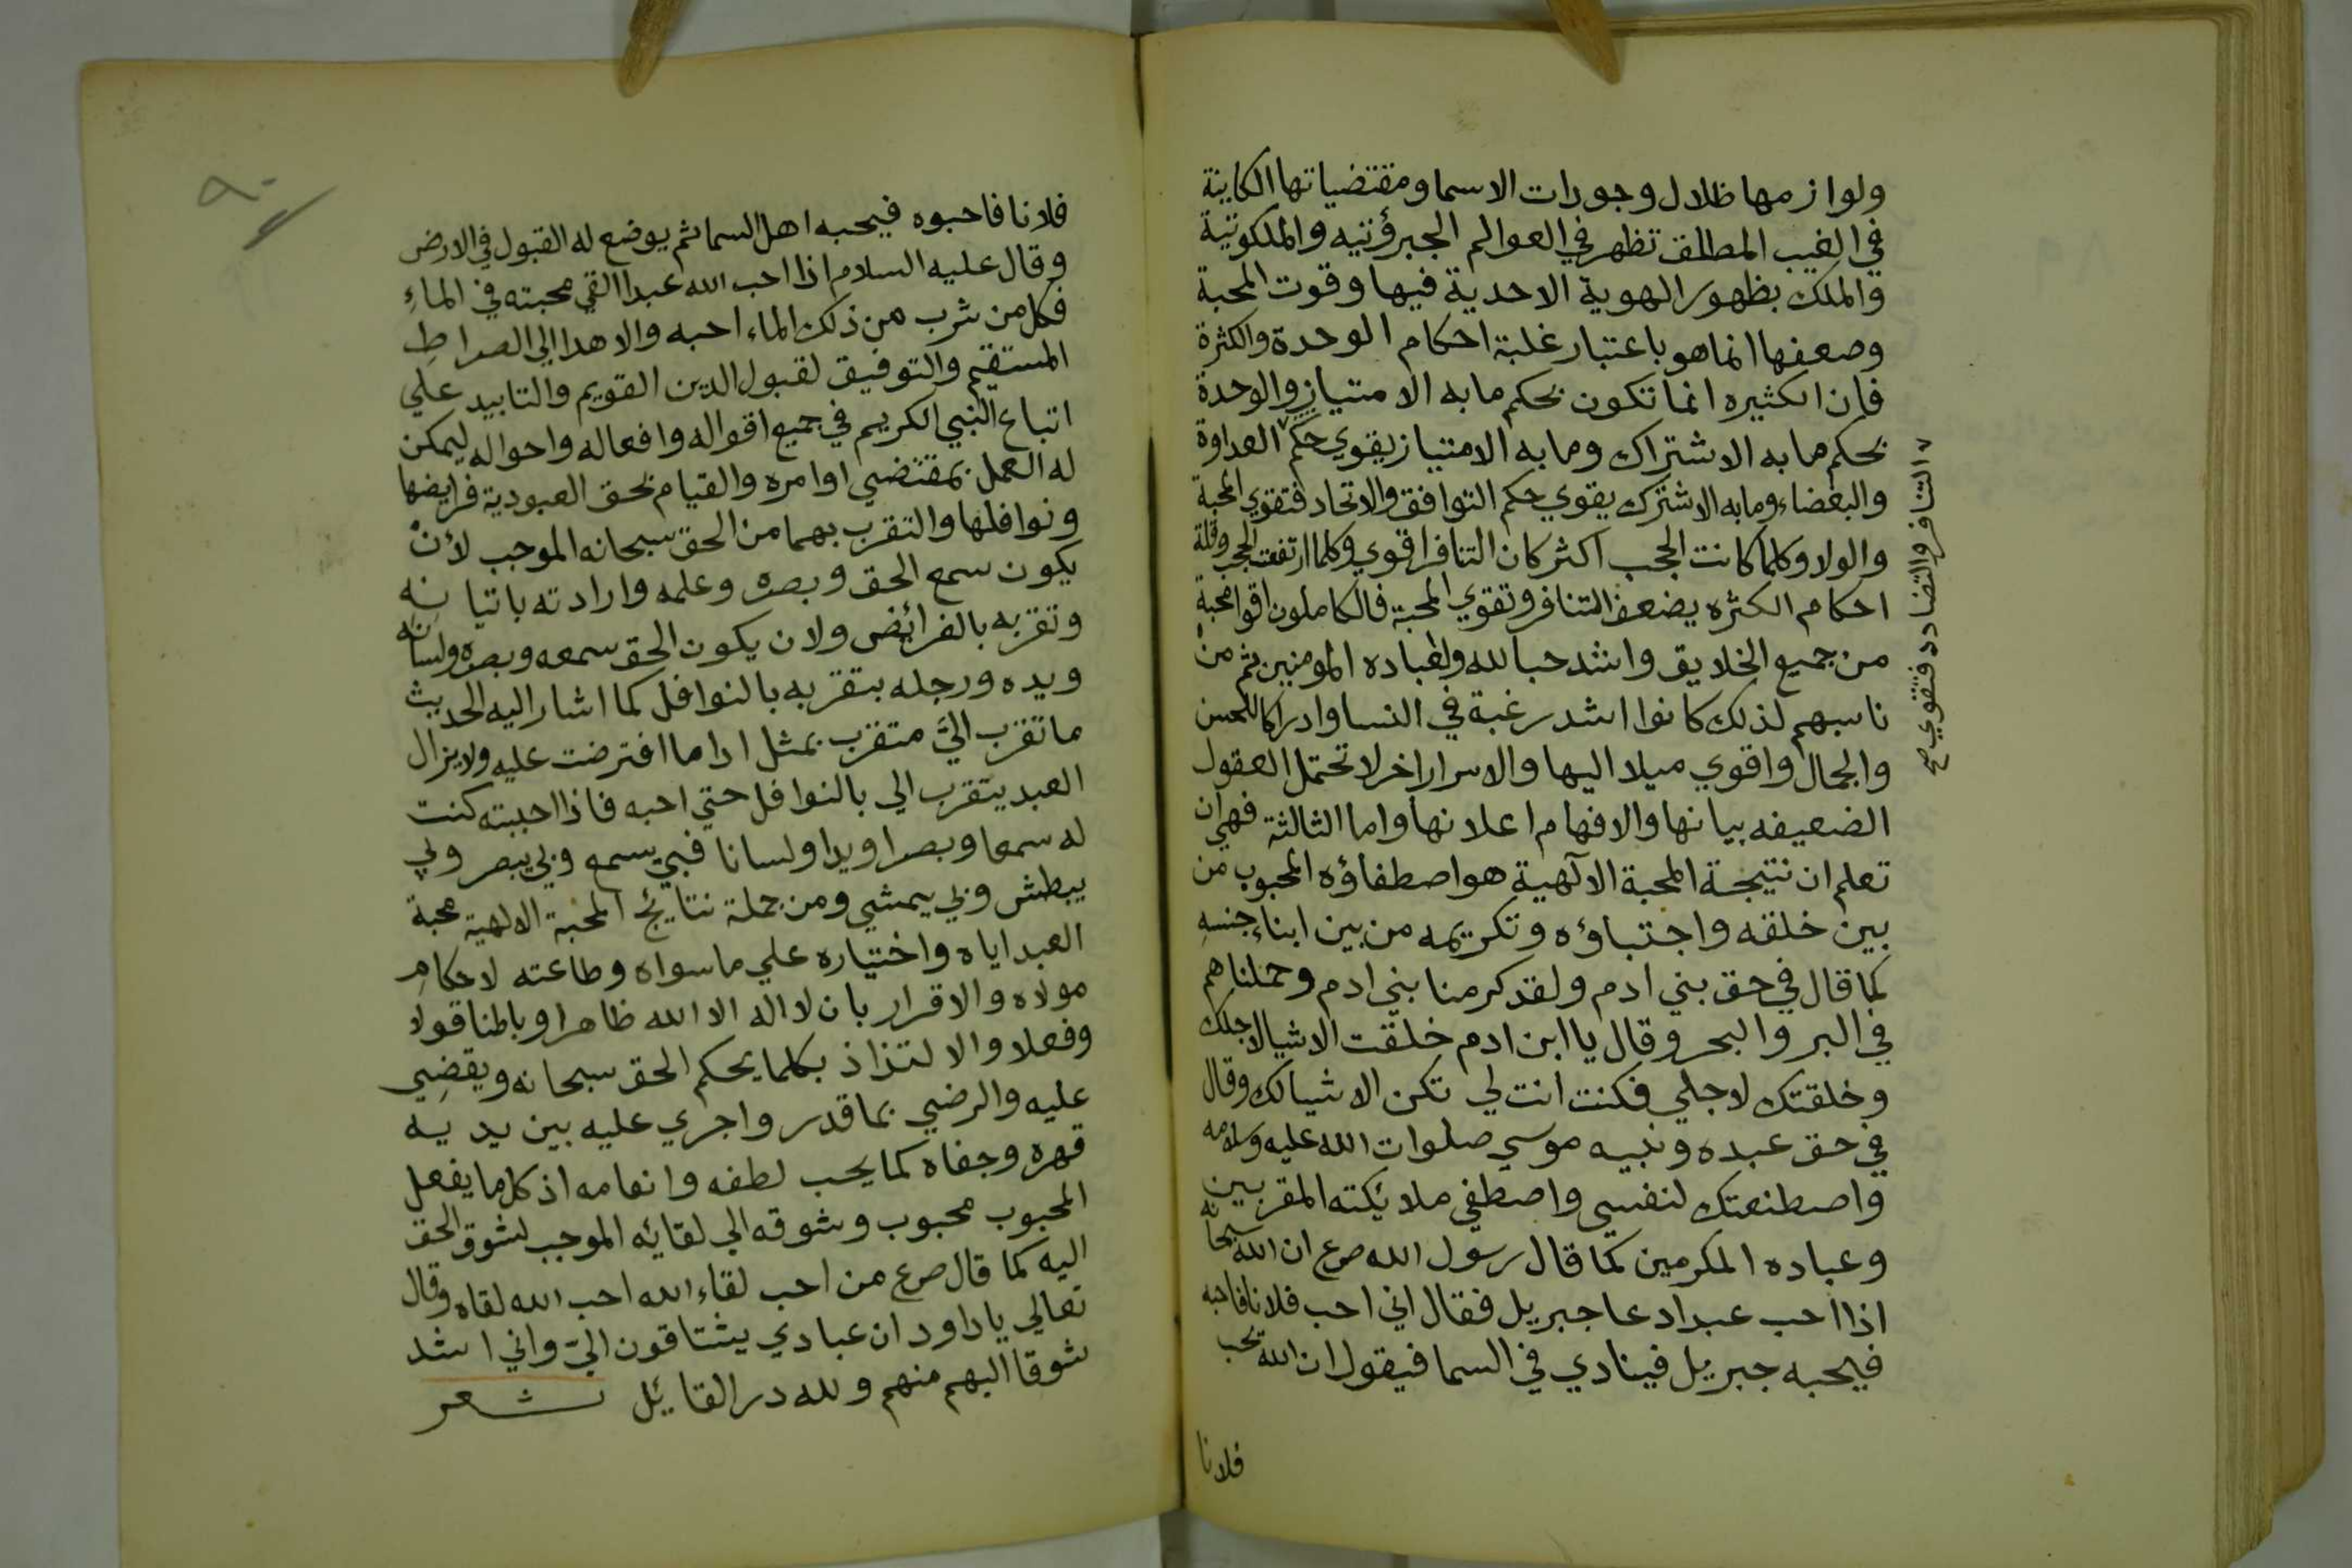 ولوازمها ظلال وجودات الاسما ومقتضياتها الكاينة
في الغيب المطلق تظهر في العوالم الجبروتيه والملكوتية
والملك بظهور الهوية الاحدية فيها وقوت المحبة
وضعفها انما هو باعتبار غلبة احكام الوحدة والكثرة
فان الكثيره انما تكون بحكم ما به الامتياز والوحدة
بحكم ما به الاشتراك وما به الامتياز يقوي حكم العداوة
والبغضاء وما به الاشترك يقوي حكم التوافق والاتحاد فتقوي المحبة
والولا وكلما كانت الحجب اكثر كان التنافر اقوي وكلما ارتفعت الحجب وقلة
احكام الكثره يضعف التنافر وتقوي المحبة فالكاملون اقوا محبة
من جميع الخلايق واشد حبا لله ولعباده المومنين ثم من
ناسبهم لذلك كانوا اشد رغبة في النسا وادراكا للحسن
والجمال واقوي ميلا اليها والاسرار اخر لا تحتمل العقول
الضعيفه بيانها والافهام اعلانها واما الثالثة فهي ان
تعلم ان نتيجة المحبة الآلهية هو اصطفاؤه المحبوب من
بين خلقه واجتباؤه وتكريمه من بين ابناء جنسهِ
كما قال في حق بني ادم ولقد كرمنا بني ادم وحملناهم
في البر والبحر وقال يا ابن ادم خلقت الاشيا لاجلك
وخلقتك لاجلي فكنت انت لي تكن الاشيا لك وقال
في حق عبده ونبيه موسي صلوات الله عليه وسلامه
واصطنعتك لنفسي واصطفي ملائكته المقربين
وعباده المكرمين كما قال رسول الله صرع ان الله سبحانه
اذا احب عبدا دعا جبريل فقال اني احب فلانا فاحبه
فيحبه جبريل فينادي في السما فيقول ان الله يحب
فلانا
والتنافر والتضادد فتقوي صح
٩٠
فلانا فاحبوه فيحبه اهل السما ثم يوضع له القبول في الارض
وقال عليه السلام اذا احب الله عبدا القي محبته في الماءِ
فكل من شرب من ذلك الماء احبه والاهدا الي الصراطِ
المستقيم والتوفيق لقبول الدين القويم والتاييد علي
اتباع النبي الكريم في جميع اقواله وافعاله واحواله ليمكن
له العمل بمقتضي اوامره والقيام بحق العبودية فرايضها
ونوافلها والتقرب بهما من الحق سبحانه الموجب لأنْ
يكون سمع الحق وبصره وعلمه وارادته باتيانه
وتقربه بالفرائض ولان يكون الحق سمعه وبصره ولسانه
ويده ورجله بتقربه بالنوافل كما اشار اليه الحديث
ما تقرب اليَّ متقرب بمثل ادا ما افترضت عليه ولا يزال
العبد يتقرب الي بالنوافل حتي احبه فاذا احببته كنت
له سمعا وبصرا ويدا ولسانا فبي يسمع وبي يبصر وبي
يبطش وبي يمشي ومن جملة نتايج المحبة الالهية محبة
العبد اياه واختياره علي ما سواه وطاعته لاحكامِ
مولاه والاقرار بان لا اله الا الله ظاهرا وباطنا قولا
وفعلا والالتذاذ بكلما يحكم الحق سبحانه ويقضي
عليه والرضي بما قدر واجري عليه بين يديه
قهره وجفاه كما يحب لطفه وانعامه اذ كل ما يفعل
المحبوب محبوب وشوقه الي لقائه الموجب لشوق الحق
اليه كما قال صرع من احب لقاء الله احب الله لقاه وقال
تعالي يا داود ان عبادي يشتاقون اليّ واني اشد
شوقا اليهم منهم ولله در القايل شعر